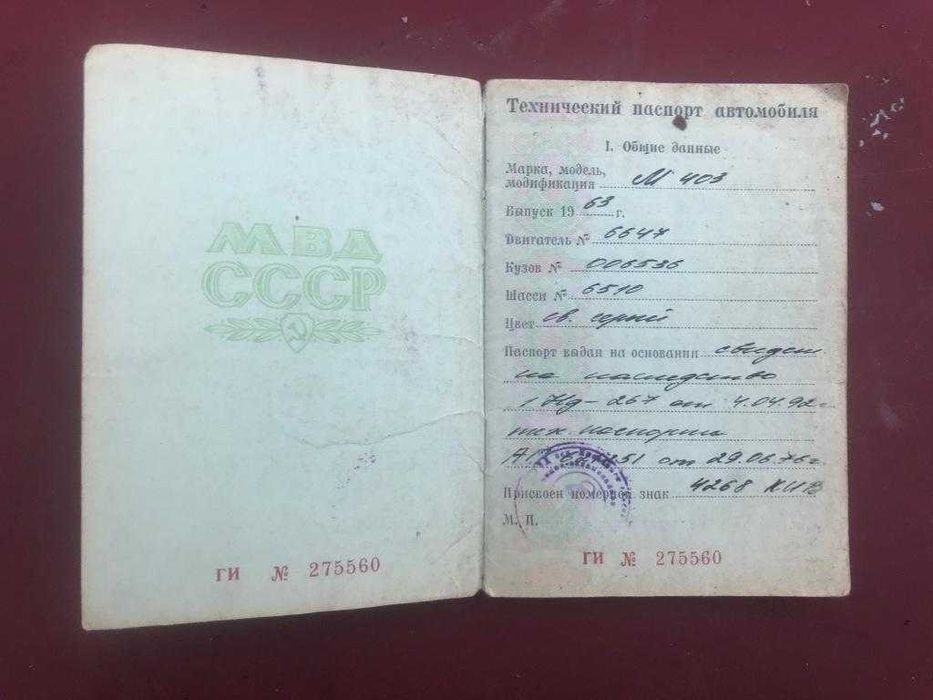 МВД
СССР
ГИ № 275560
Технический паспорт автомобиля
I. Общие данные
Марка, модель,
модификация М 403
Выпуск 1963 г.
Двигатель № 6647
Кузов № 006536
Шасси № 6510
Цвет св. серый
Паспорт выдан на основании свиден
на наследство
1 НД-267 от 4.04.92г
тех. паспорта
от 29.06.76г
Присвоен номерной знак 4268 КИВ
М. П.
ГИ № 275560